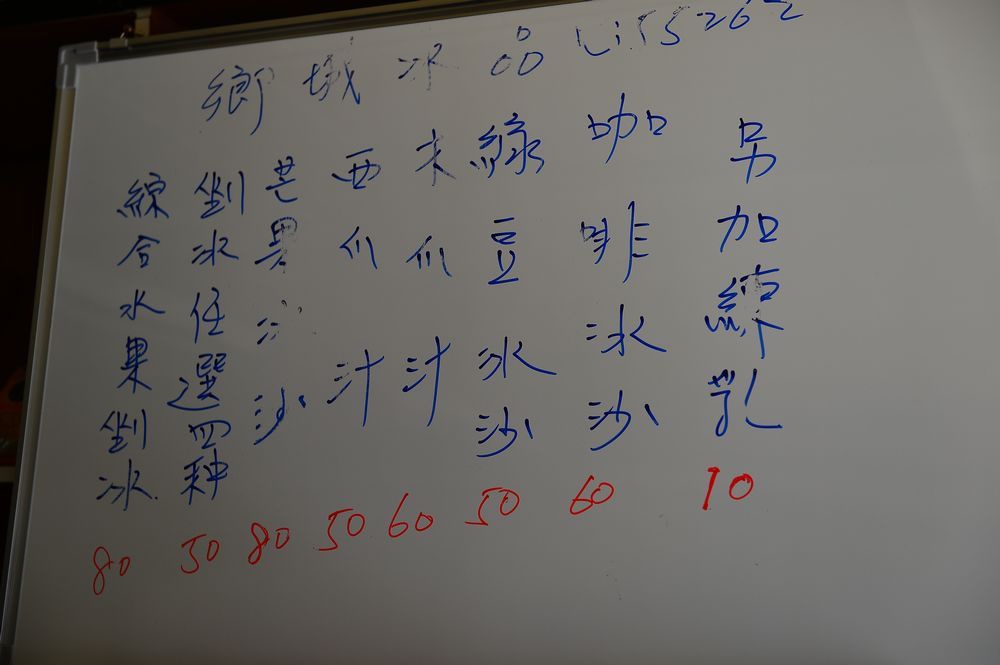 鄉城冰品
另加練乳 10
咖啡冰沙 60
綠豆冰沙 50
木瓜汁 60
西瓜汁 50
芒果冰沙 80
剉冰任選四种 50
綜合水果剉冰 80